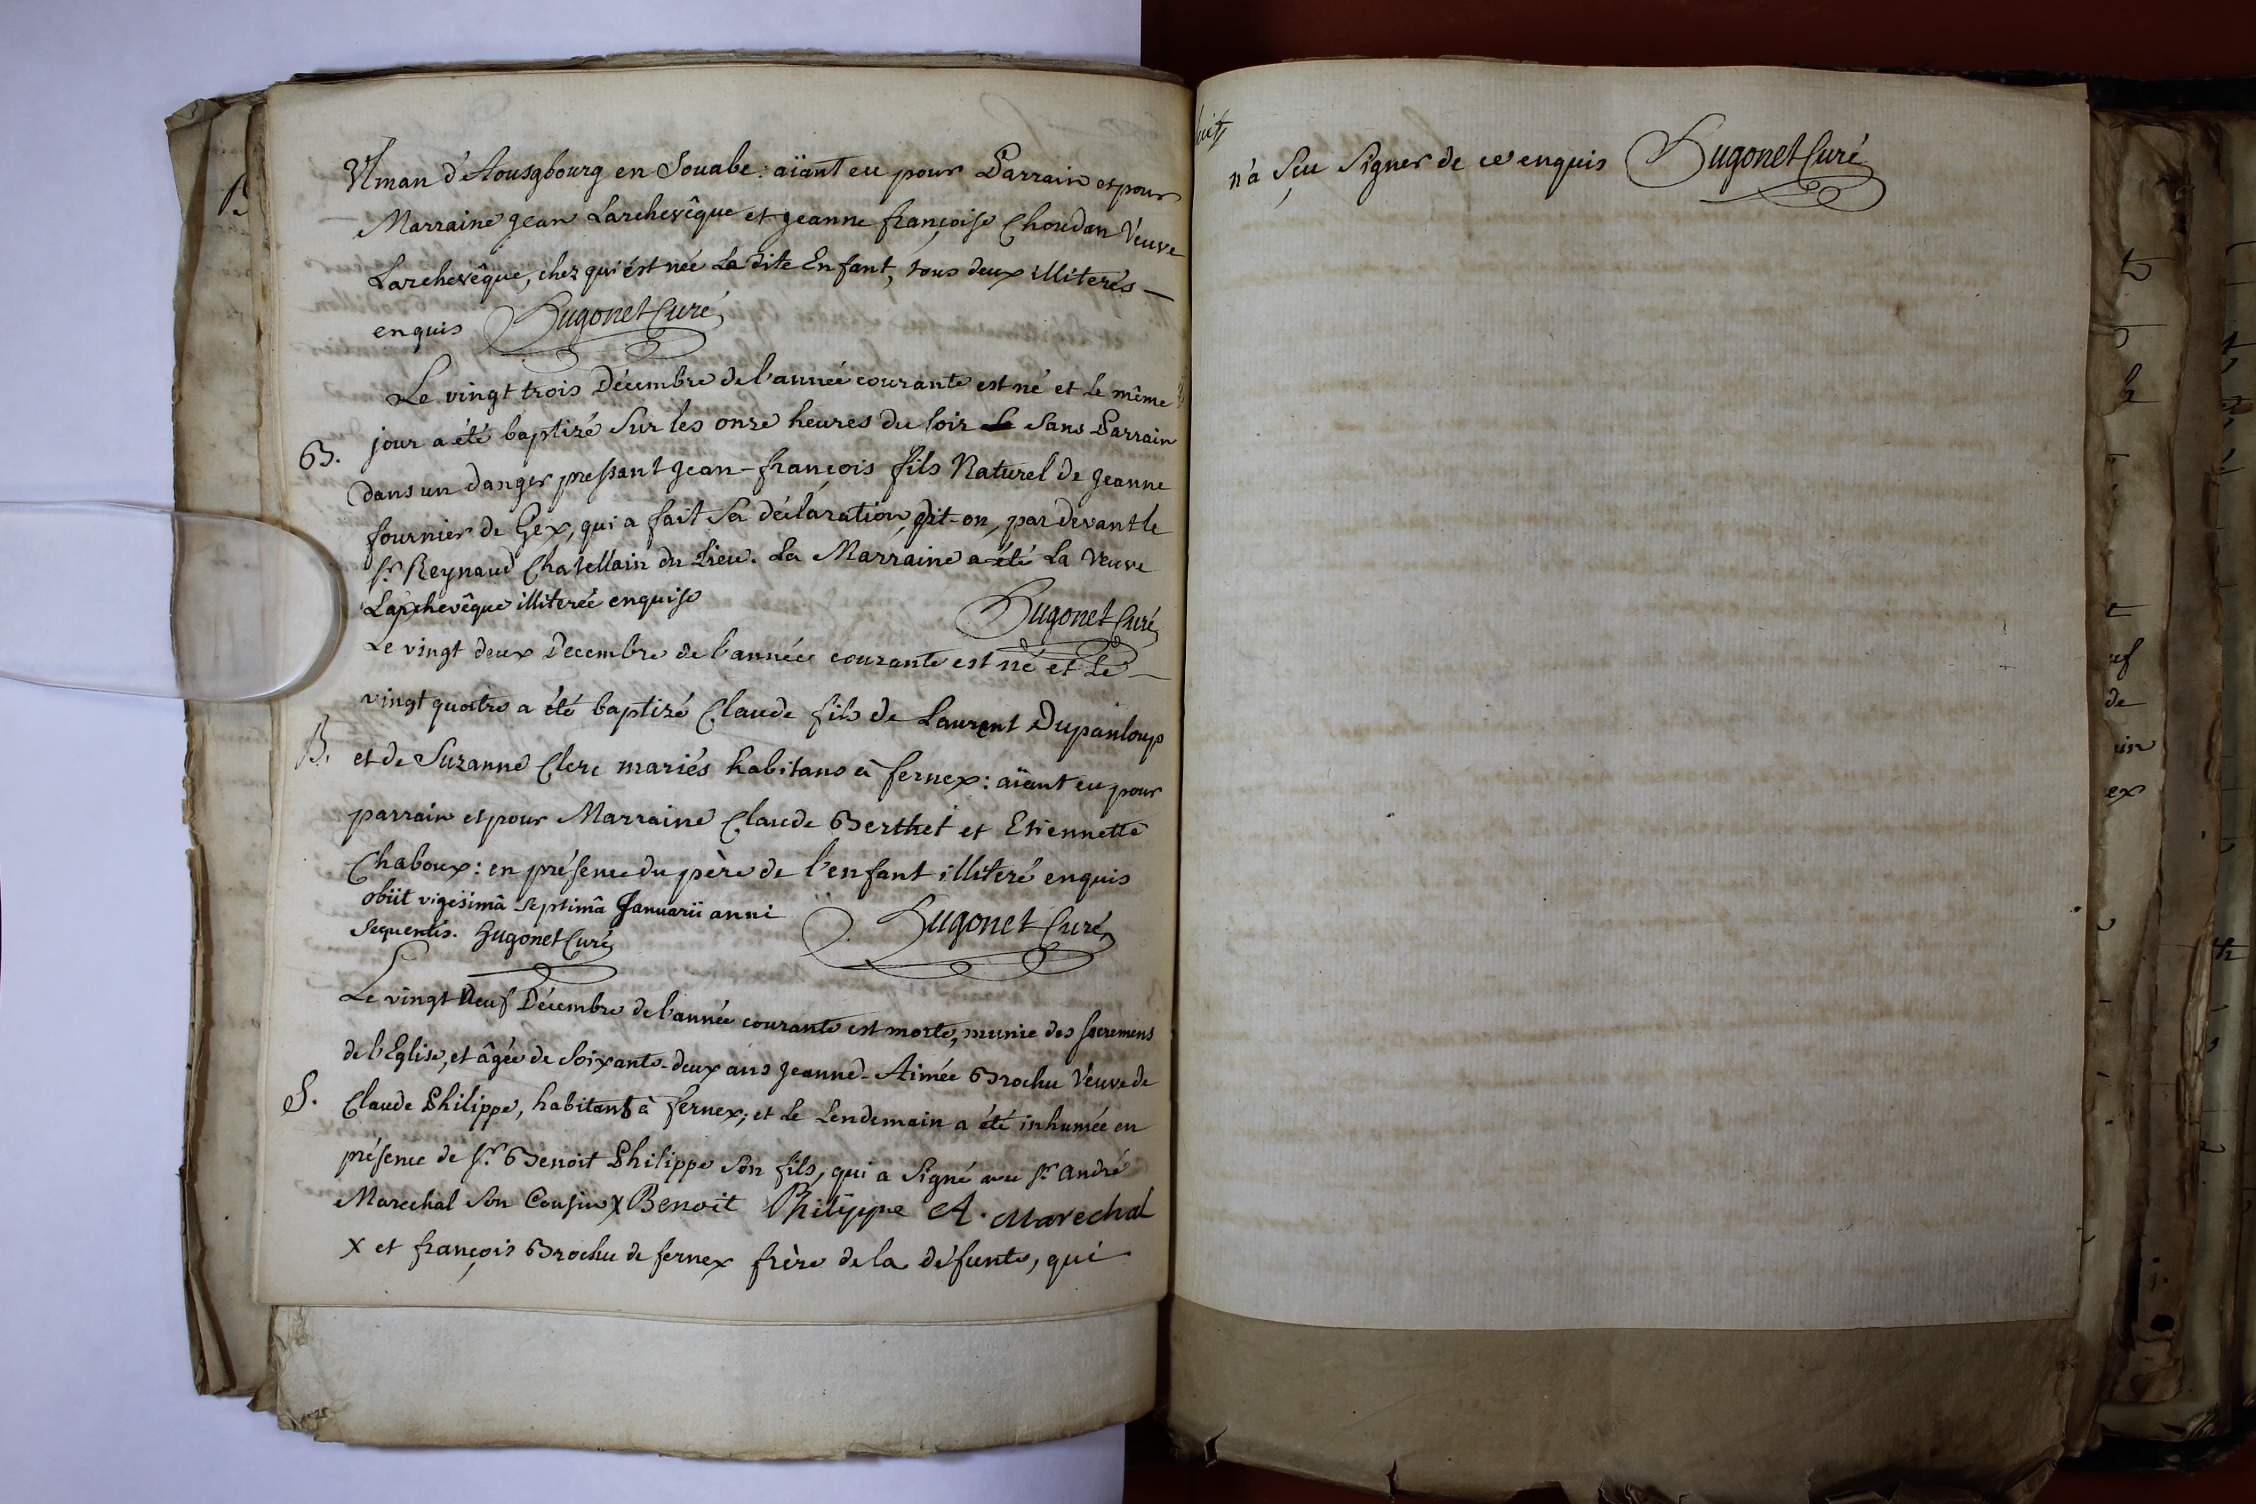 Ulman d'Aousgbourg en Souabe : aïant eu pour Parrain et pour
Marraine Jean Larchevêque et Jeanne françoise Choudan Veuve
Larchevêque, chez qui ést née La dite Enfant, tous deux illiterés —
enquis Hugonet Curé
Le vingt trois Décembre de l'année courante est né et le même
jour a été baptizé Sur les onze heures du soir Sans Parrain
B. dans un danger pressant Jean-françois fils Naturel de Jeanne
fournier de Gex, qui a fait Sa déclaration, dit-on, par devant le
Sr. Reynaud Chatellain du Lieu. La Marraine a été La Veuve
Larchevêque illiterée enquise Hugonet Curé
Le vingt deux Decembre de l'année courante est né et Le —
vingt quatre a été baptizé Claude fils de Laurent Dupanloup
B. et de Suzanne Clerc mariés habitans à fernex : aïant eu pour
parrain et pour Marraine Claude Berthet et Etiennette
Chaboux : en présence du père de l'enfant illiteré enquis
obiit vigesimâ septimâ Januarii anni Hugonet Curé
sequentis. Hugonet Curé
Le vingt Neuf Décembre de l'année courante est morte, munie des sacremens
de l'Eglise, et âgée de Soixante-deux ans Jeanne-Aimée Brochu Veuve de
S. Claude Philippe, habitant à fernex ; et Le Lendemain a été inhumée en
présence de Sr. Benoit Philippe Son fils, qui a Signé avec Sr. André
Marechal Son Cousin X Benoit Philippe A. Marechal
X et françois Brochu de fernex frère de la défunte, qui
n'a sçu Signer de ce enquis Hugonet Curé